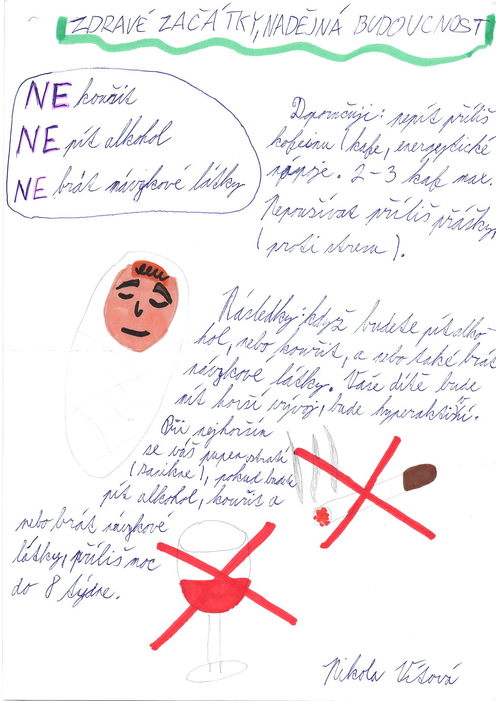 ZDRAVÉ ZAČÁTKY, NADĚJNÁ BUDOUCNOST
NE kouřit
NE pít alkohol
NE brát návykové látky
Doporučuji: nepít příliš
kofeinu (kafe, energetické
nápoje. 2-3 kafe max.
Nepoužívat příliš prášky
(proti stresu).
Následky: když budete pít alko-
hol, nebo kouřit, a nebo také brát
návykové látky. Vaše dítě bude
mít horší vývoj, bude hyperaktivní.
Při nejhorším
se váš pupen ztratí
(zanikne), pokud budete
pít alkohol, kouřit a
nebo brát návykové
látky, příliš moc
do 8 týdne.
Nikola Vítová